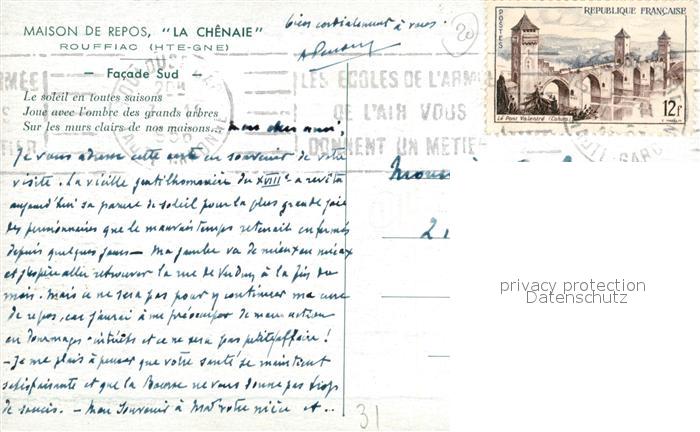 MAISON DE REPOS, "LA CHÊNAIE"
ROUFFIAC (HTE-GNE)
- Façade Sud -
Le soleil en toutes saisons
Joue avec l'ombre des grands arbres
Sur les murs clairs de nos maisons...
bien cordialement à vous.
RÉPUBLIQUE FRANÇAISE
POSTES
Le Pont Valentré (Cahors)
12f
LES ÉCOLES DE L'ARMÉE
DE L'AIR VOUS
DONNENT UN MÉTIER
mon cher ami,
Je vous adresse cette carte en souvenir de votre
visite. La vieille gentilhommière du XVIIIe a revêtu
aujourd'hui sa parure de soleil pour la plus grande joie
des pensionnaires que le mauvais temps retenait enfermés
depuis quelques jours - Ma jambe va de mieux en mieux
et j'espère aller retrouver la rue de Verdun à la fin du
mois. Mais ce ne sera pas pour y continuer ma cure
de repos, car j'aurai à me préoccuper de mon action
en dommages-intérêts et ce ne sera pas petite affaire !
- Je me plais à penser que votre santé se maintient
satisfaisante et que la Bourse ne vous donne pas trop
de soucis. - Mon souvenir à Mad votre nièce et ..
Mons
2
20
31
privacy protection
Datenschutz